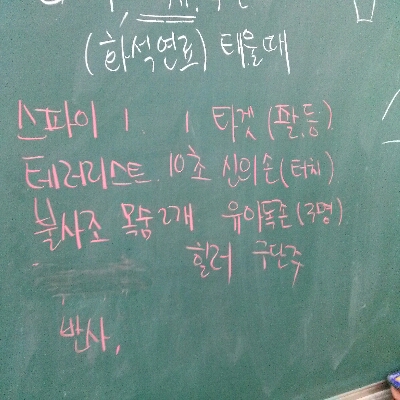 (화석연료) 태울때
스파이 1. 1 타겟 (팔,등)
테러리스트. 10초 신의손 (터치)
불사조 목숨 2개 유아독존 (3명)
힐러 구단주
반사,